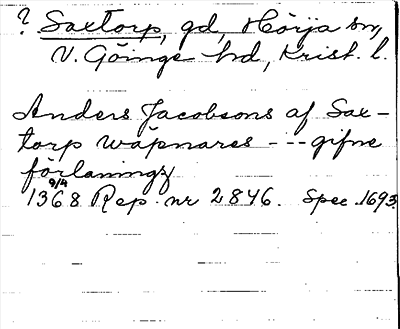 ? Saxtorp, gd, Hörja sn,
V. Göinge hd, Krist. l.
Anders Jacobsons af Sax-
torp wäpnares - -- gifne
förlaningz
9/4
1368 Rep. nr 2846. Spec. 1693.